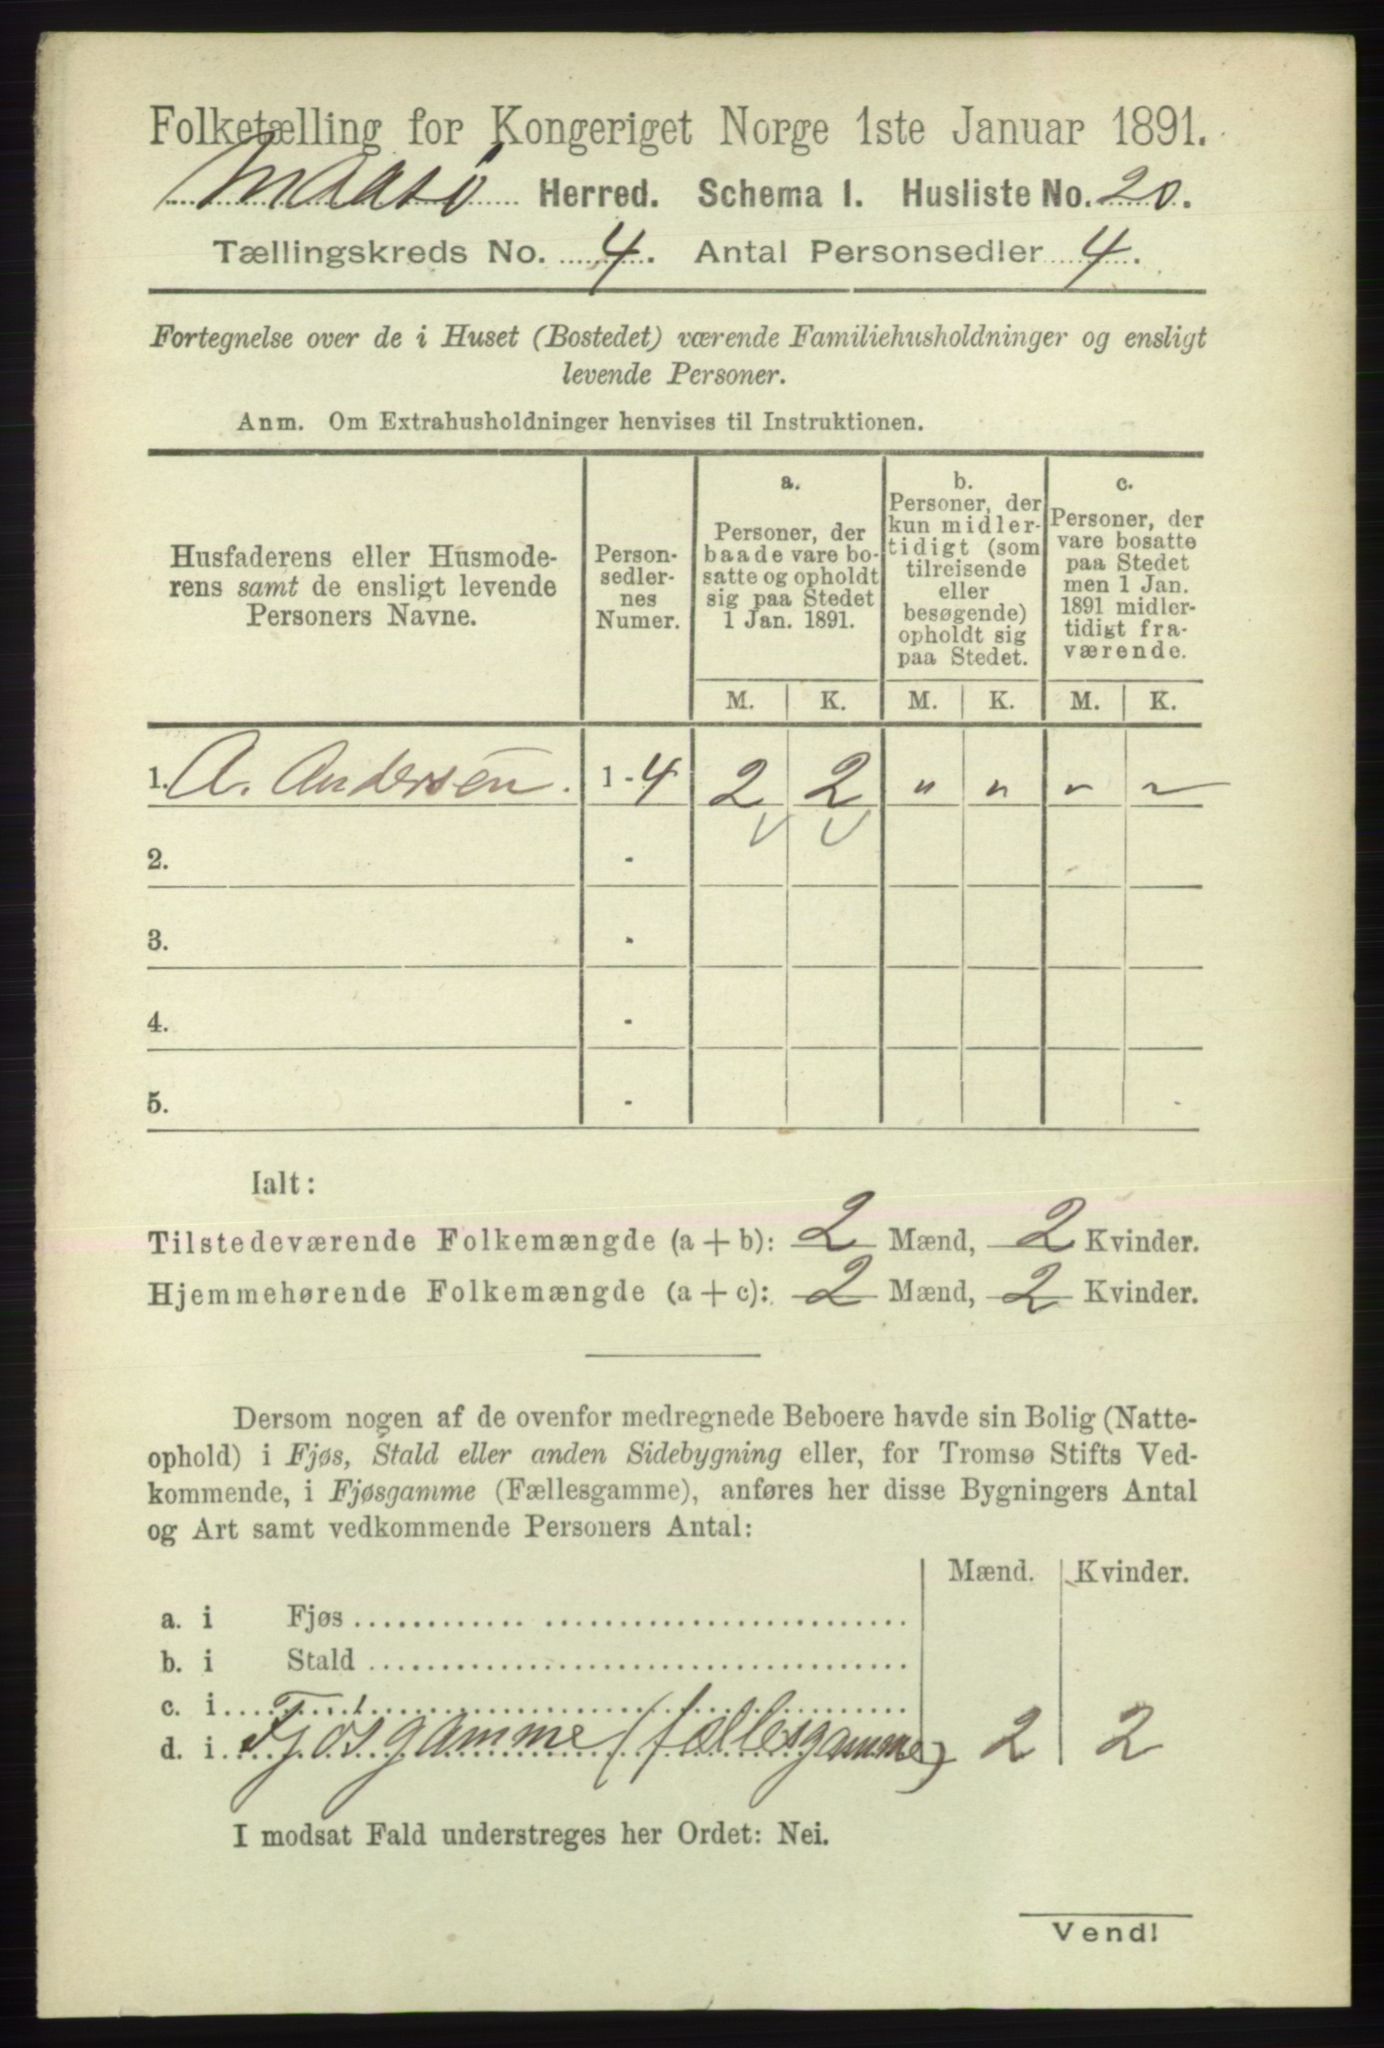 Folketælling for Kongeriget Norge 1ste Januar 1891.
Maasø Herred. Schema I. Husliste No. 20.
Tællingskreds No. 4. Antal Personsedler 4.
Fortegnelse over de i Huset (Bostedet) værende Familiehusholdninger og ensligt
levende Personer.
Anm. Om Extrahusholdninger henvises til Instruktionen.
Husfaderens eller Husmode-
rens samt de ensligt levende
Personers Navne.
Person-
sedler-
nes
Numer.
a.
Personer, der
baade vare bo-
satte og opholdt
sig paa Stedet
1 Jan. 1891.
b.
Personer, der
kun midler-
tidigt (som
tilreisende
eller
besøgende)
opholdt sig
paa Stedet.
c.
Personer, der
vare bosatte
paa Stedet
men 1 Jan.
1891 midler-
tidigt fra-
værende.
M. K. M. K. M. K.
1. A. Andersen. 1 - 4 2 2 " " " "
2. -
3. -
4. -
5. -
Ialt:
Tilstedeværende Folkemængde (a + b): 2 Mænd, 2 Kvinder.
Hjemmehørende Folkemængde (a + c): 2 Mænd, 2 Kvinder.
Dersom nogen af de ovenfor medregnede Beboere havde sin Bolig (Natte-
ophold) i Fjøs, Stald eller anden Sidebygning eller, for Tromsø Stifts Ved-
kommende, i Fjøsgamme (Fællesgamme), anføres her disse Bygningers Antal
og Art samt vedkommende Personers Antal:
Mænd. Kvinder.
a. i Fjøs
b. i Stald
c. i
d. i Fjøsgamme (fællesgamme) 2 2
I modsat Fald understreges her Ordet: Nei.
Vend!